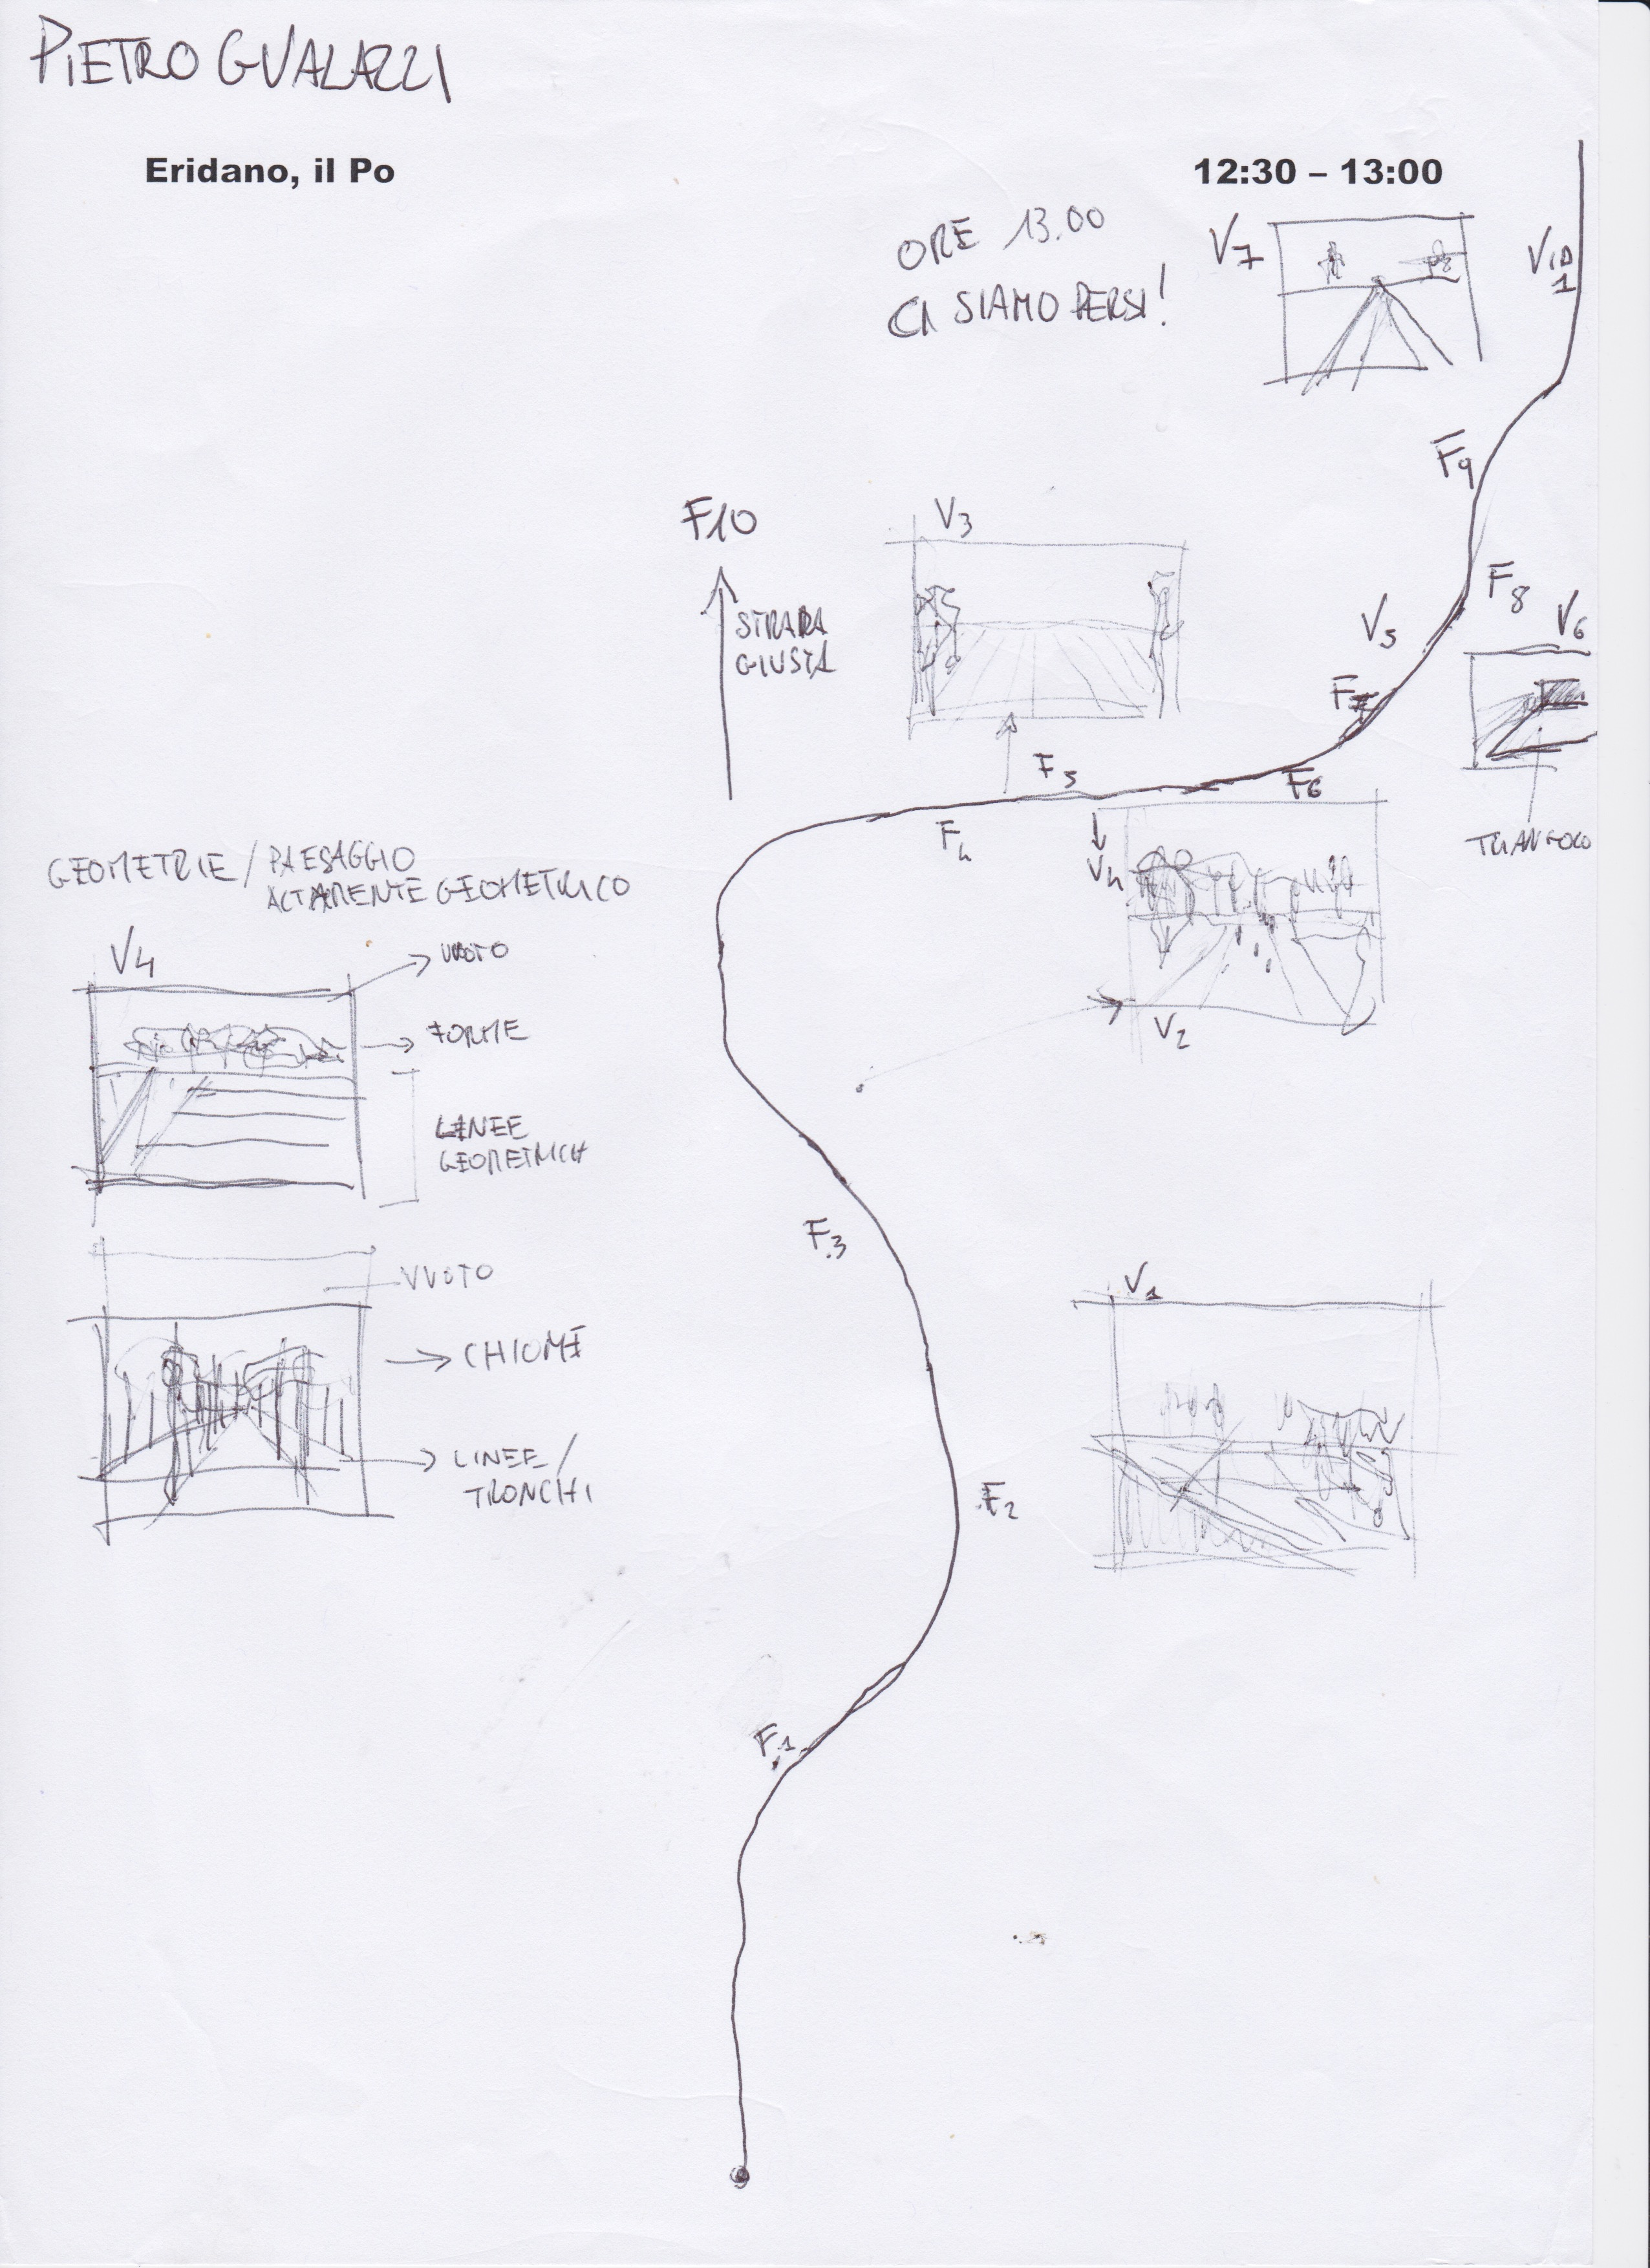 PIETRO GUALAZZI
Eridano, il Po
12:30 – 13:00
ORE 13.00
CI SIAMO PERSI!
V7
VID
1
F9
F10
STRADA
GIUSTA
V3
F8
V5
V6
F7
F5
F6
F4
V4
TRIANGOLO
GEOMETRIE / PAESAGGIO
ALTAMENTE GEOMETRICO
V4
VUOTO
FORME
LINEE
GEOMETRICH
V2
F3
VUOTO
V1
CHIOME
LINEE /
TRONCHI
F2
F1